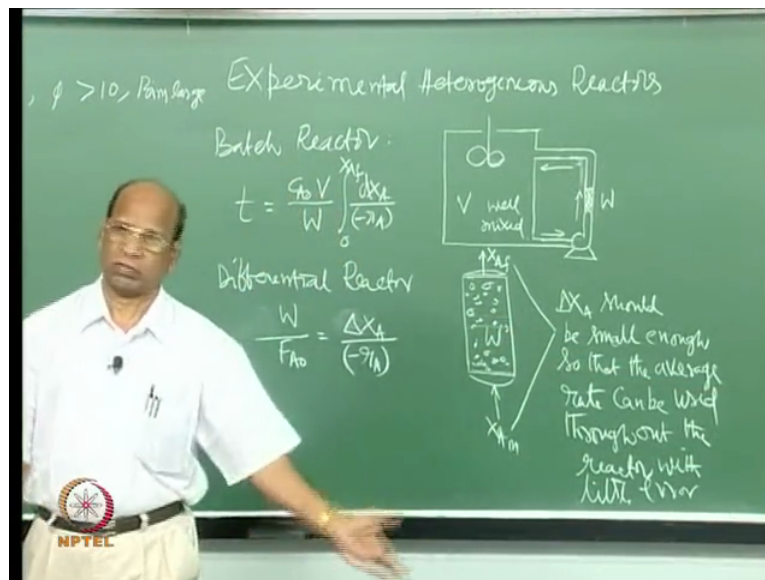 , φ > 10, Bim large
Experimental Heterogeneous Reactors
Batch Reactor:
t = C_A0 V / W ∫_0^{X_Af} dX_A / (-r_A)
V well
mixed
W
Differential Reactor
W / F_A0 = ΔX_A / (-r_A)
X_Af
W
X_A in
ΔX_A should
be small enough
so that the average
rate can be used
throughout the
reactor with
little error
NPTEL